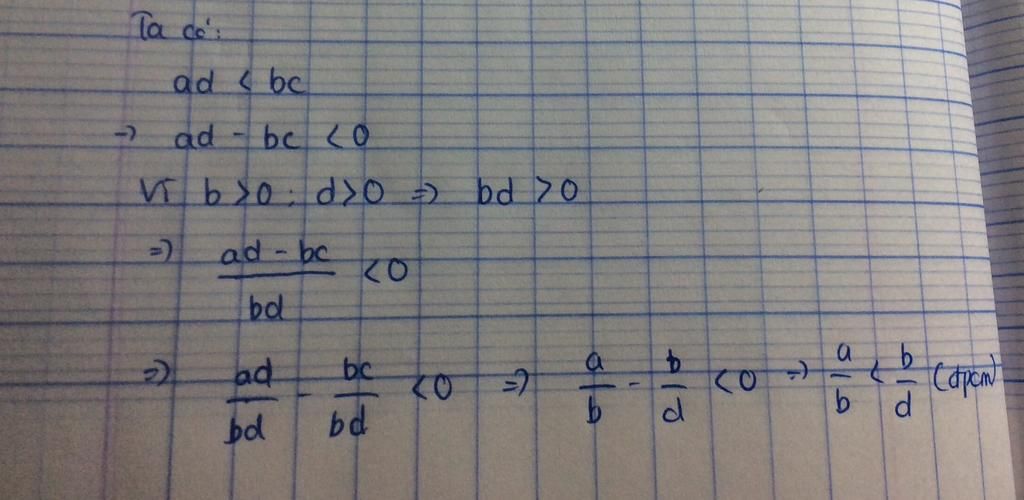 Ta có:
ad < bc
=> ad - bc < 0
Vì b > 0 ; d > 0 => bd > 0
=> \frac{ad - bc}{bd} < 0
=> \frac{ad}{bd} - \frac{bc}{bd} < 0 => \frac{a}{b} - \frac{b}{d} < 0 => \frac{a}{b} < \frac{b}{d} (đpcm)